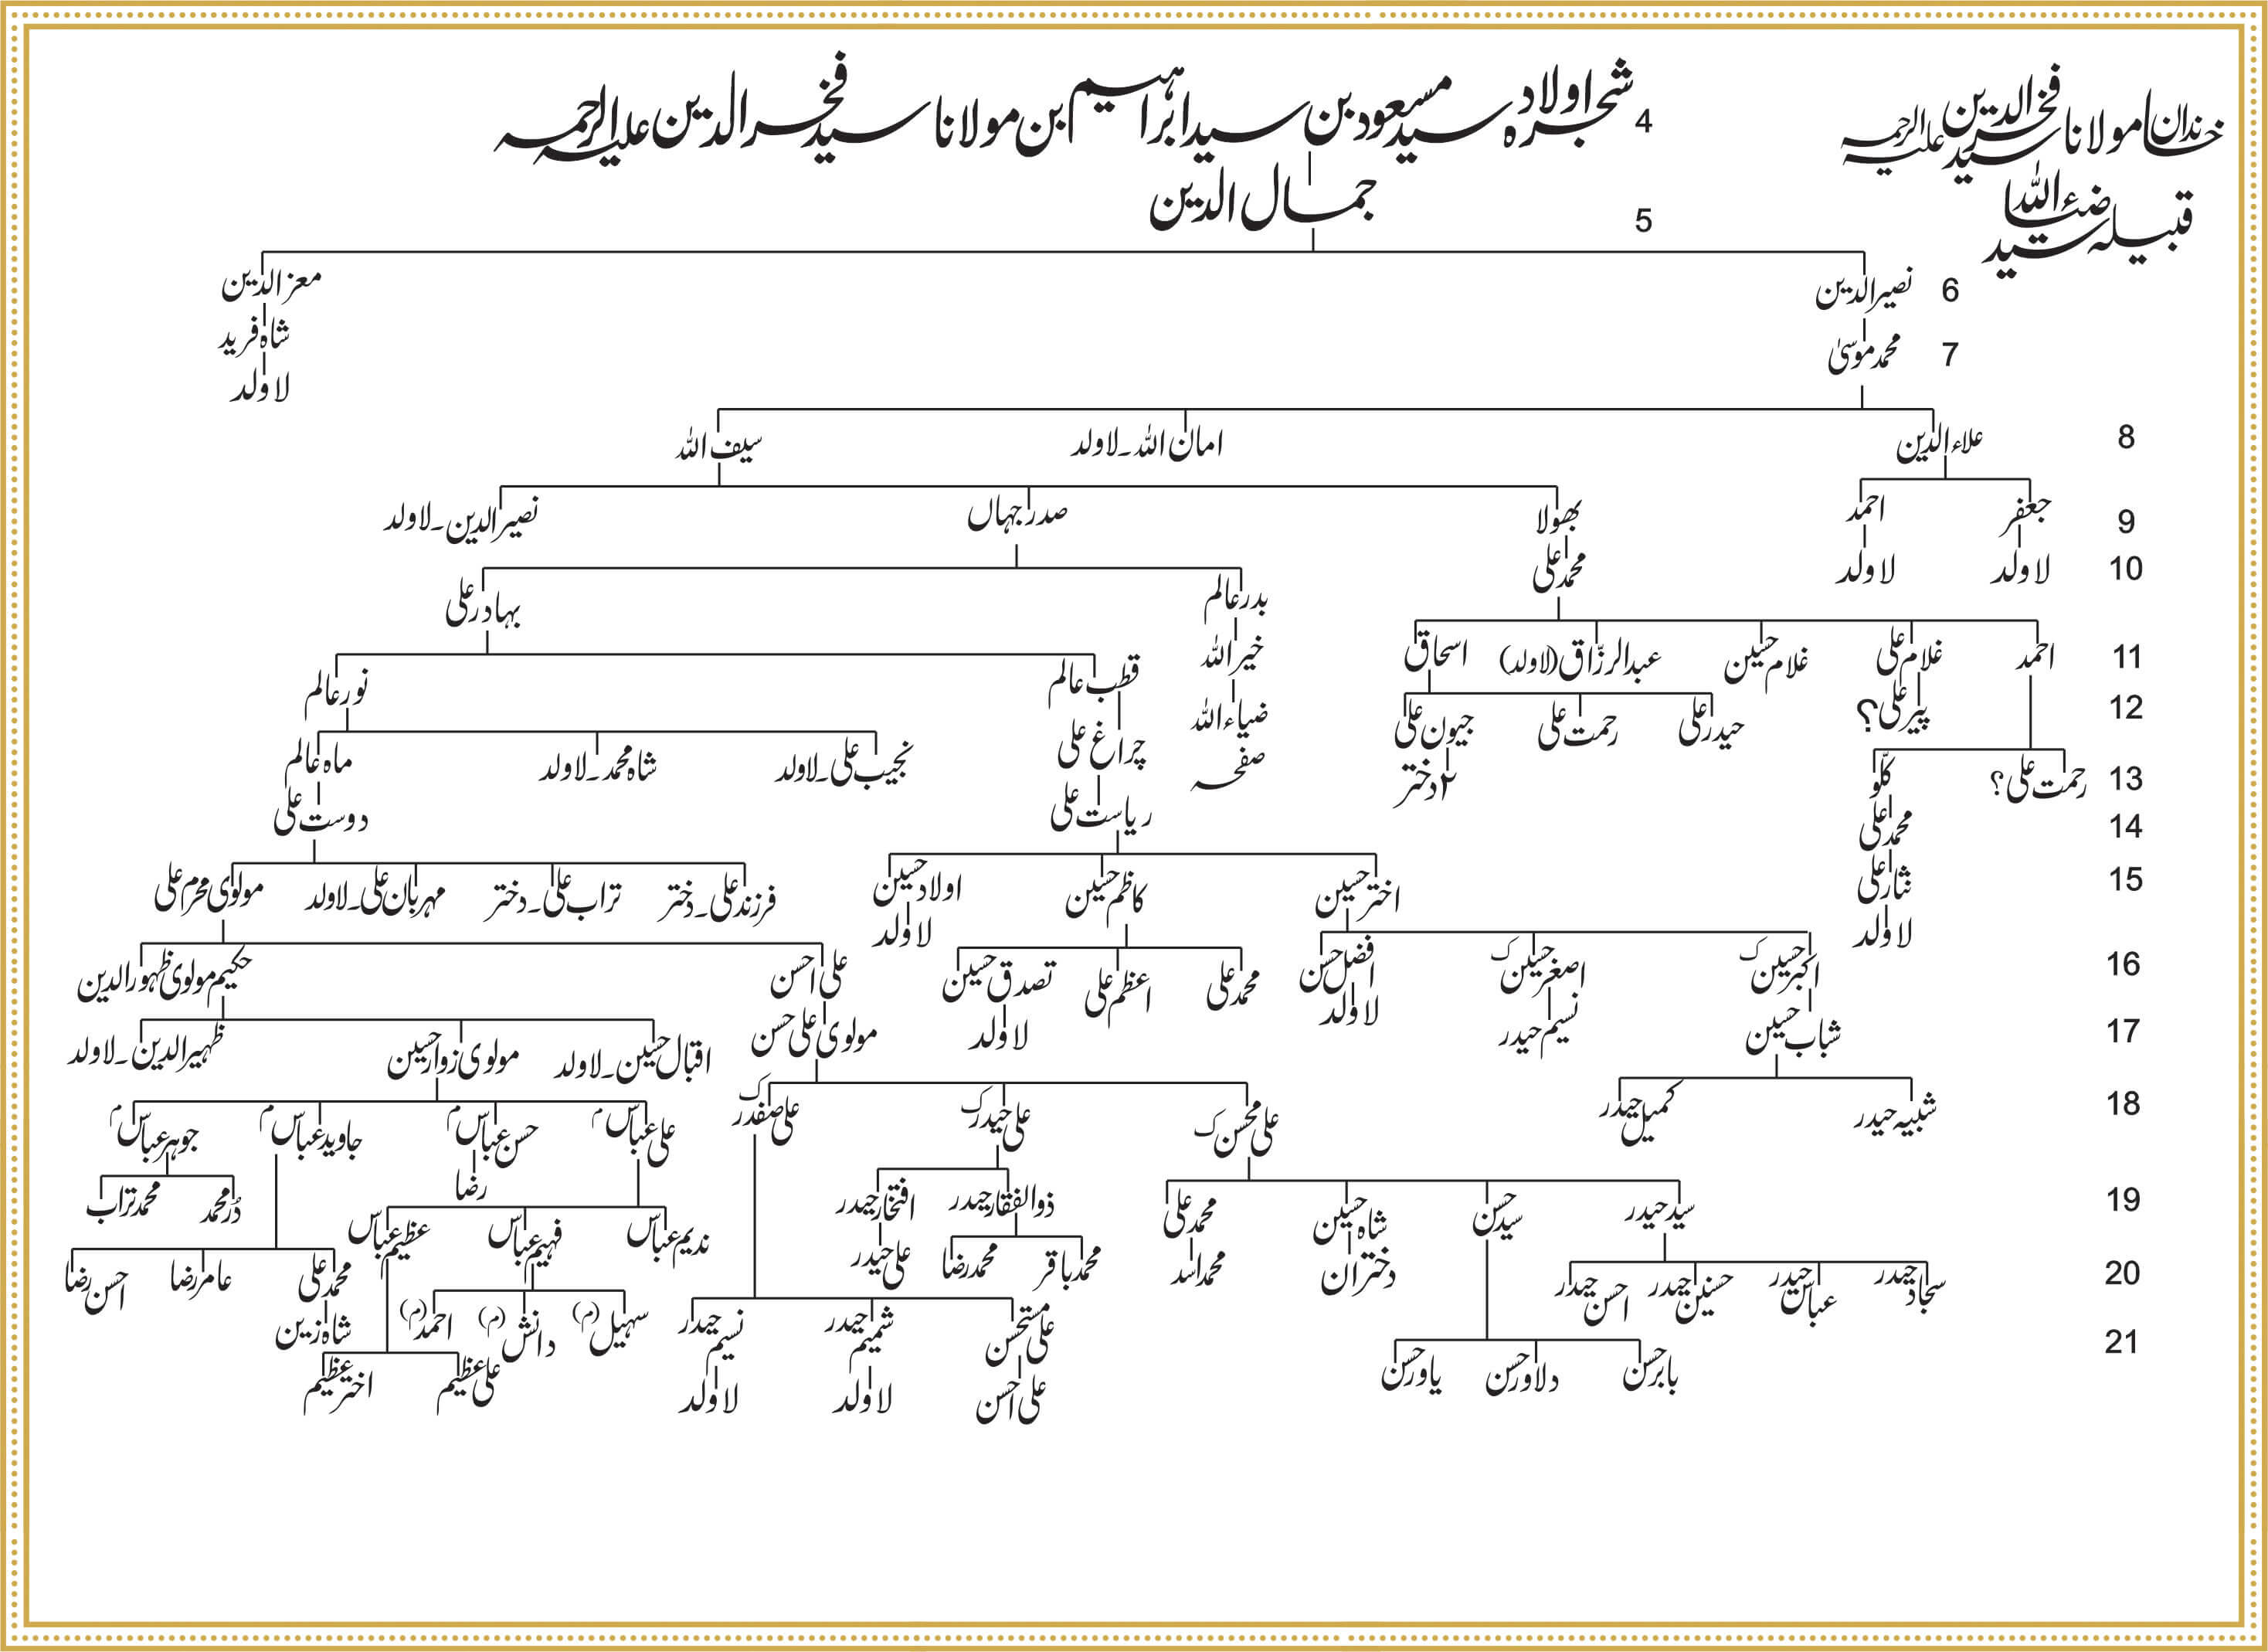 خاندان مولانا سید فخرالدین علیہ الرحمہ
قبیلہ سید ضیاءاللہ
4 شجرہ اولاد سید مسعود بن سید ابراہیم بن مولانا سید فخرالدین علیہ الرحمہ
5 جمال الدین
6 نصیرالدین معزالدین
7 محمد موسیٰ شاہ فرید
لاولد
8 علاءالدین امان اللہ۔لاولد سیف اللہ
9 جعفر احمد بھولا صدر جہاں نصیرالدین۔لاولد
10 لاولد لاولد محمد علی بدر عالم بہادر علی
11 احمد غلام علی غلام حسین عبدالرزّاق (لاولد) اسحاق خیراللہ قطب عالم نور عالم
12 پیر علی؟ حیدر علی رحمت علی جیون علی ضیاءاللہ چراغ علی نجیب علی۔لاولد شاہ محمد۔لاولد ماہ عالم
13 رحمت علی؟ کلّو ۲دختر صفحہ
14 محمد علی ریاست علی دوست علی
15 نثار علی اختر حسین کاظم حسین اولاد حسین فرزند علی۔دختر تراب علی۔دختر مہربان علی۔لاولد مولوی محرم علی
لاولد لاولد
16 اکبر حسین ک اصغر حسین ک افضل حسن محمد علی اعظم علی تصدق حسین علی احسن حکیم مولوی ظہورالدین
17 شباب حسین نسیم حیدر لاولد لاولد مولوی علی حسن اقبال حسین۔لاولد مولوی زوار حسین ظہیرالدین۔لاولد
18 شبیہ حیدر کمیل حیدر علی محسن ک علی حیدر ک علی صفدر ک علی عباس م حسن عباس م جاوید عباس م جوہر عباس م
19 سید حیدر سید حسن شاہ حسین محمد علی ذوالفقار حیدر افتخار حیدر رضا دُر محمد محمد تراب
ندیم عباس فہیم عباس عظیم عباس
20 سجاد حیدر عباس حیدر حسنین حیدر احسن حیدر دختران محمد اسد محمد باقر محمد رضا علی حیدر محمد علی عامر رضا احسن رضا
علی مستحسن شمیم حیدر نسیم حیدر سہیل (م) دانش (م) احمد (م) شاہ زین
21 بابر حسن دلاور حسن یاور حسن علی احسن لاولد لاولد علی عظیم اختر عظیم